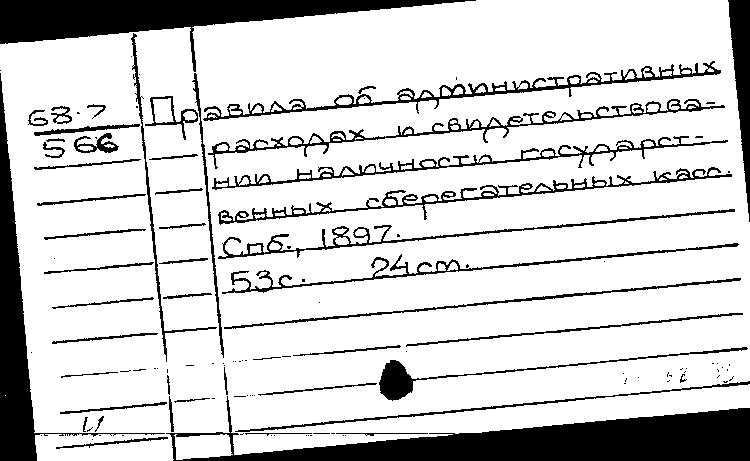 68.7
566
Правила об административных
расходах и свидетельствова-
нии наличности государст-
венных сберегательных касс.
Спб., 1897.
53с. 24см.
И